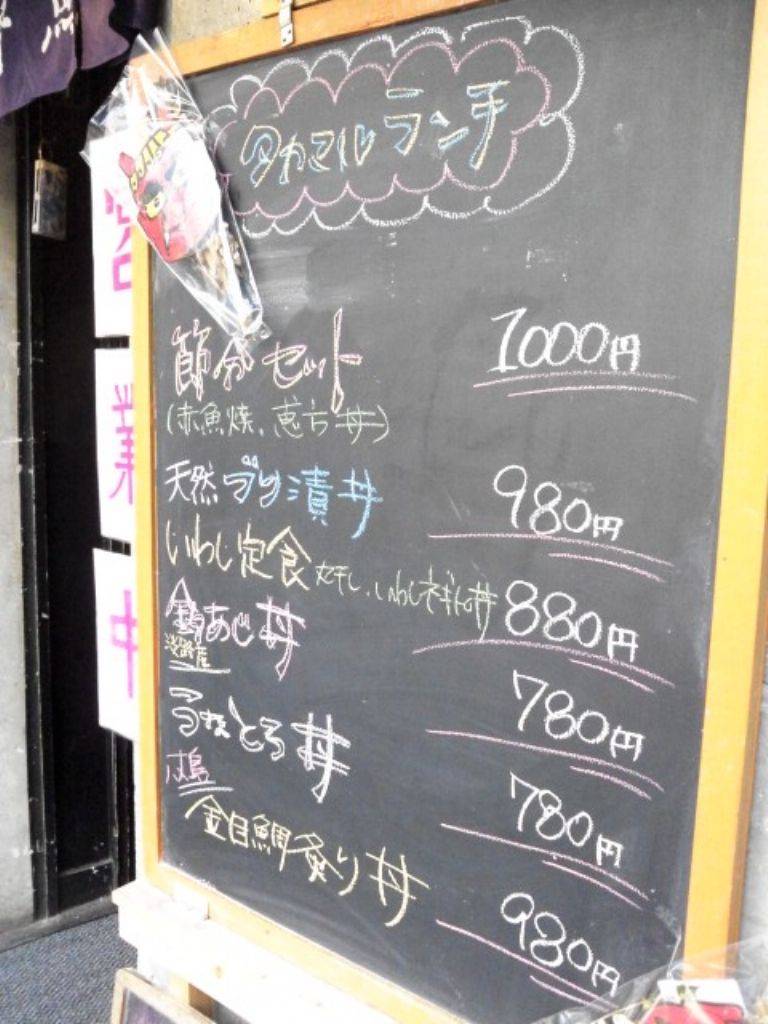 タカマル ランチ
節分セット 1000円
(赤魚焼、恵方丼)
天然ブリ漬丼 980円
いわし定食 丸干し、いわしネギトロ丼 880円
あじ丼 780円
淡路産
とろ丼 780円
八丈島
金目鯛炙り丼 980円
営
業
中